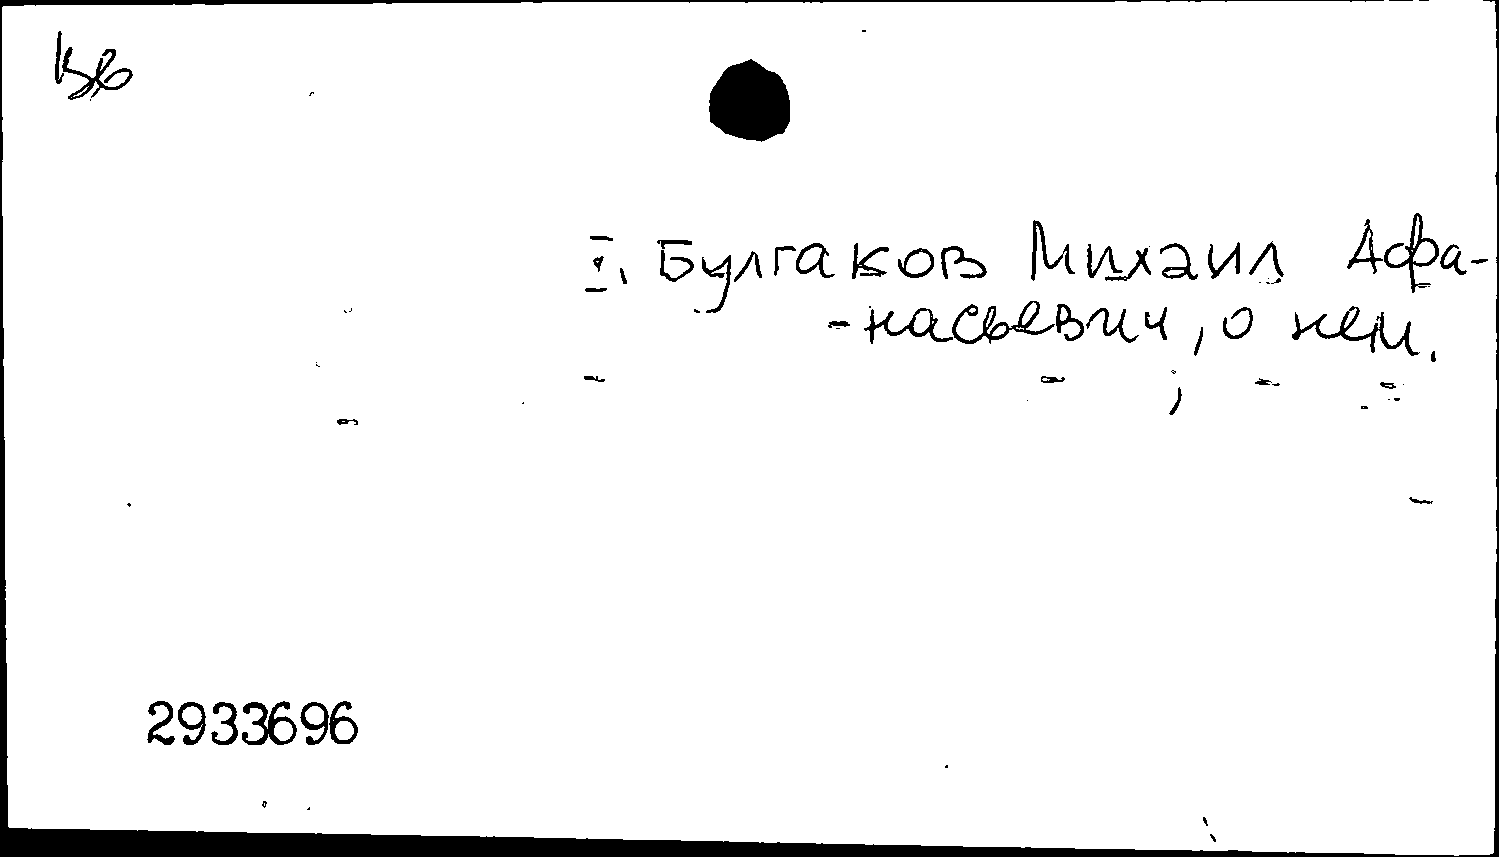 I. Булгаков Михаил Афа-
-насьевич, о нем.
2933696